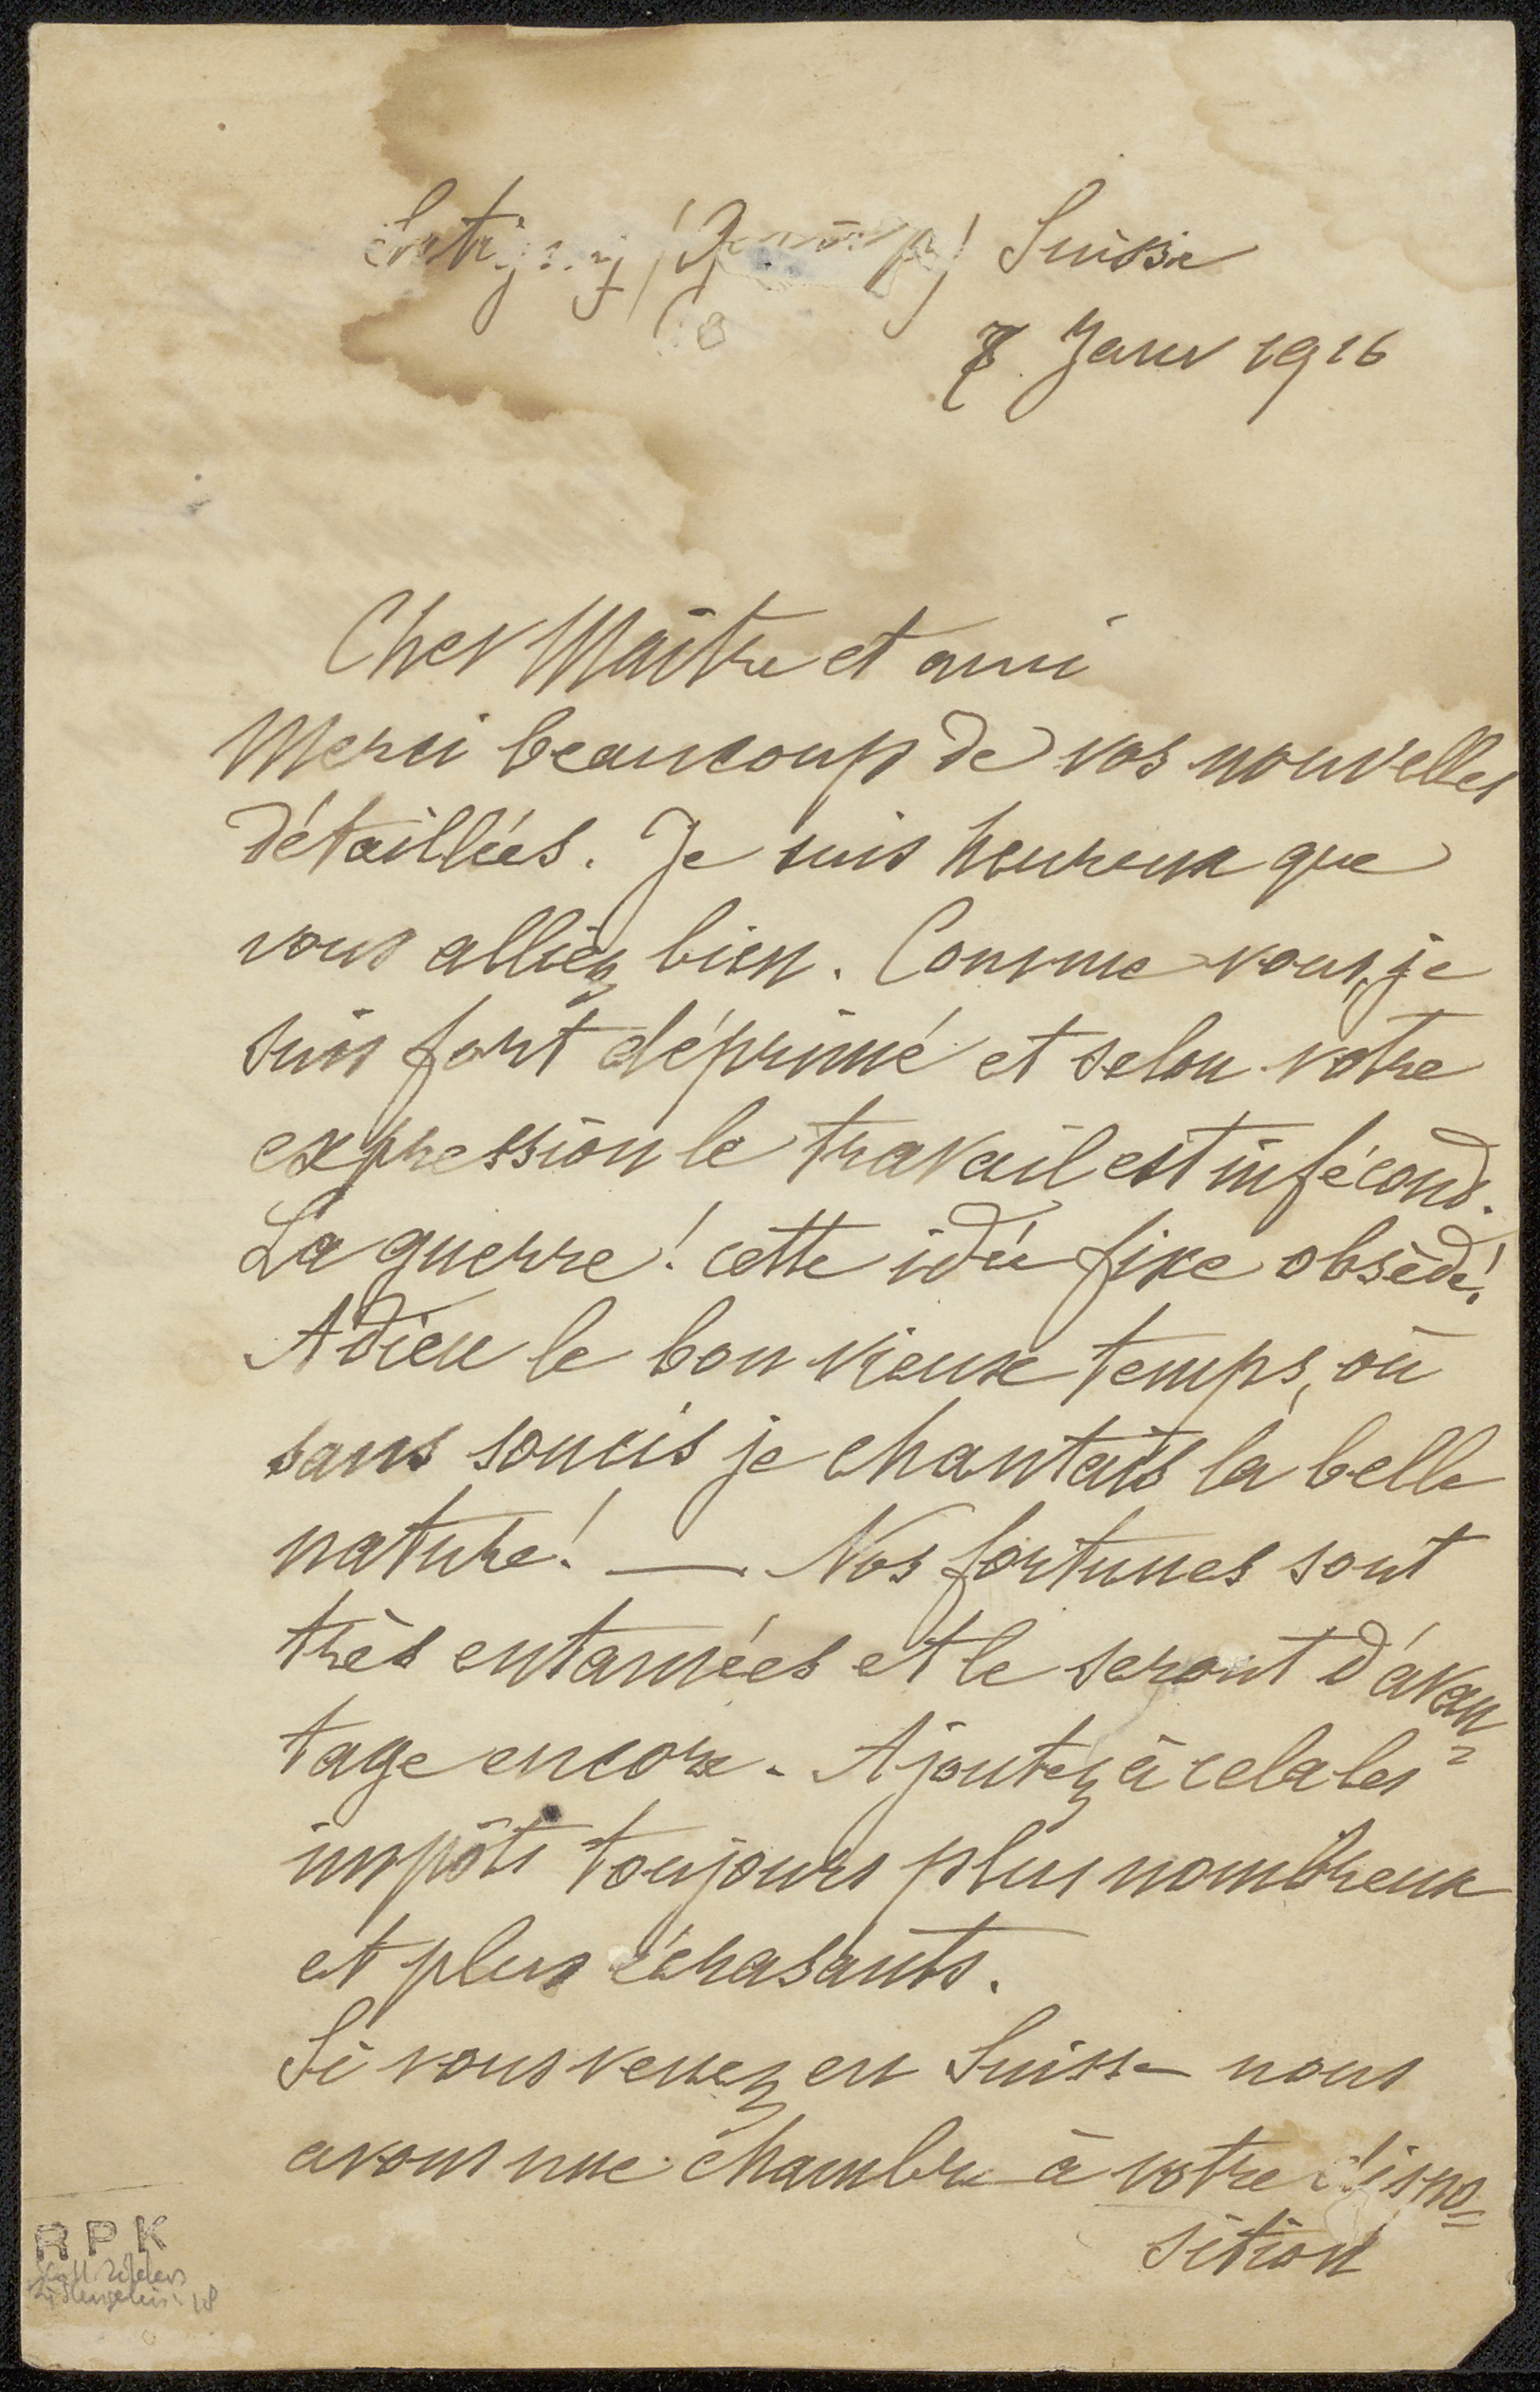 Satigny (Genève) Suisse
7 Janv 1916
Cher Maître et ami
Merci beaucoup de vos nouvelles
détaillées. Je suis heureux que
vous alliez bien. Comme vous, je
suis fort déprimé et selon votre
expression le travail est infécond.
La guerre! cette idée fixe obsède!
Adieu le bon vieux temps, où
sans soucis je chantais la belle
nature! — Nos fortunes sont
très entamées et le seront d'avan=
tage encore. Ajoutez à cela les
impôts toujours plus nombreux
et plus écrasants.
Si vous venez en Suisse nous
avons une chambre à votre dispo=
sition
RPK